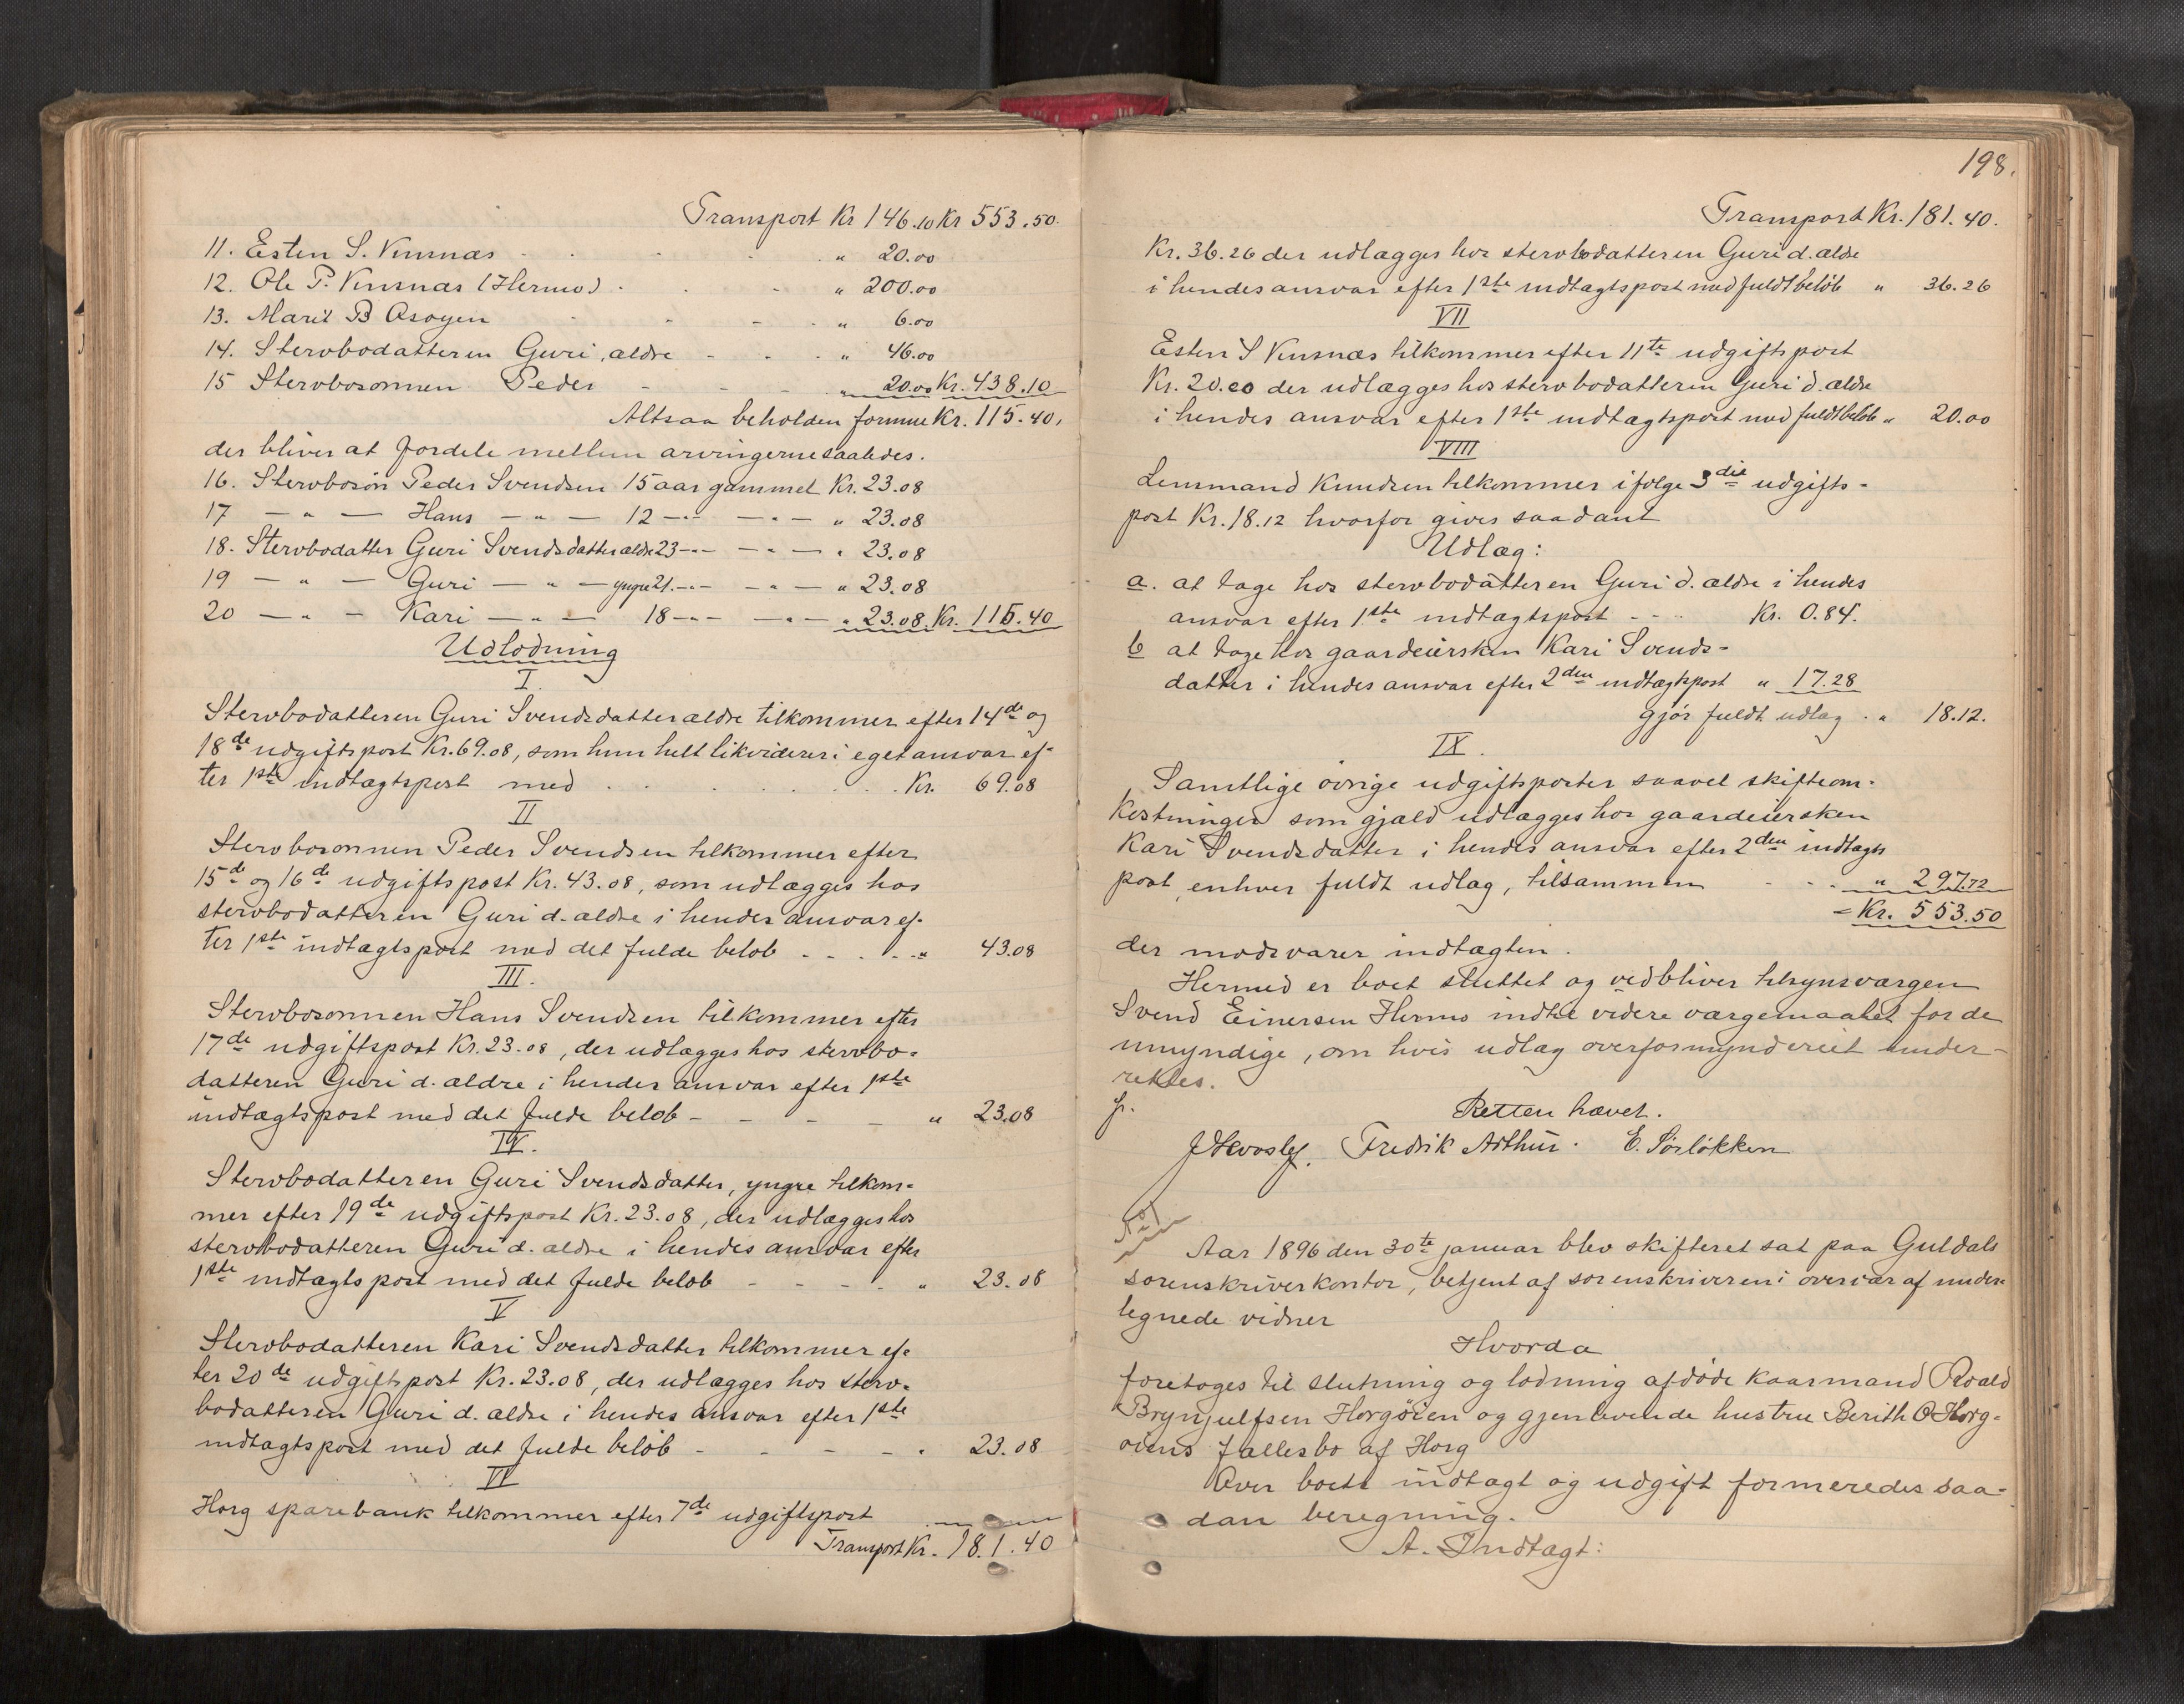 Transport Kr 146.10 Kr 553.50.
11. Esten S. Vinsnæs . . . . " 20.00
12. Ole P. Vinsnæs (Hermo) . . . " 200.00
13. Marit B Åsøyen - - - . " 6.00
14. Stervbodatteren Guri, ældre - . . " 46.00
15 Stervbosønnen Peder - - - " 20.00 Kr. 438.10
Altsaa beholden formue Kr. 115.40,
der bliver at fordele mellem arvingerne saaledes.
16. Stervbosøn Peder Svendsen 15 aar gammel Kr. 23.08
17 — " — Hans — " — 12 -"- — " — " 23.08
18. Stervbodatter Guri Svendsdatter ældre 23 -"- — " — " 23.08
19 — " — Guri — " — yngre 21. -"- — " — " 23.08
20 — " — Kari — " — 18 -"- — " — " 23.08. Kr. 115.40
Udlodning
I.
Stervbodatteren Guri Svendsdatter ældre tilkommer efter 14de og
18de udgiftspost Kr. 69.08, som hun helt likviderer i eget ansvar ef-
ter 1ste indtægtspost med . . . . . . . Kr. 69.08
II
Stervbosønnen Peder Svendsen tilkommer efter
15de og 16de udgiftspost Kr. 43.08, som udlægges hos
stervbodatteren Guri d. ældre i hendes ansvar ef-
ter 1ste indtægtspost med det fulde beløb - . . . " 43.08
III.
Stervbosønnen Hans Svendsen tilkommer efter
17de udgiftspost Kr. 23.08, der udlægges hos stervbo-
datteren Guri d. ældre i hendes ansvar efter 1ste
indtægtspost med det fulde beløb - - - - " 23.08
IV.
Stervbodatteren Guri Svendsdatter, yngre tilkom-
mer efter 19de udgiftspost Kr. 23.08, der udlægges hos
stervbodatteren Guri d. ældre i hendes ansvar efter
1ste indtægtspost med det fulde beløb - - - . " 23.08
V
Stervbodatteren Kari Svendsdatter tilkommer ef-
ter 20de udgiftspost Kr. 23.08, der udlægges hos sterv-
bodatteren Guri d. ældre i hendes ansvar efter 1ste
indtægtspost med det fulde beløb - - - - . 23.08
VI
Horg sparebank tilkommer efter 7de udgiftspost
Transport Kr. 181.40
198.
Transport Kr. 181.40.
Kr. 36.26 der udlægges hos stervbodatteren Guri d. ældre
i hendes ansvar efter 1ste indtægtspost med fuldt beløb " 36.26
VII
Esten S Vinsnæs tilkommer efter 11te udgiftspost
Kr. 20.00 der udlægges hos stervbodatteren Guri d. ældre
i hendes ansvar efter 1ste indtægtspost med fuldt beløb " 20.00
VIII
Lensmand Knudsen tilkommer ifølge 3die udgifts-
post Kr. 18.12 hvorfor gives saadant
Udlæg:
a. at tage hos stervbodatteren Guri d. ældre i hendes
ansvar efter 1ste indtægtspost - - .. Kr. 0.84.
b at tage hos gaardeiersken Kari Svends-
datter i hendes ansvar efter 2den indtægtspost " 17.28
gjør fuldt udlæg . " 18.12.
IX.
Samtlige øvrige udgiftsposter saavel skifteom-
kostninger som gjæld udlægges hos gaardeiersken
Kari Svendsdatter i hendes ansvar efter 2den indtægts
post, enhver fuldt udlæg, tilsammen - - . " 297.72
= Kr. 553.50
der modsvarer indtægten.
Hermed er boet sluttet og vedbliver tilsynsværgen
Svend Einersen Hermo indtil videre værgemaalet for de
umyndige, om hvis udlæg overformynderiet under-
rettes.
Retten hævet.
Fredrik Arthur. E. Sørløkken
Aar 1896 den 30te januar blev skifteret sat paa Guldals
sorenskriverkontor, betjent af sorenskriveren i overvær af under-
tegnede vidner
Hvorda
foretoges til slutning og lodning afdøde kaarmand Roald
Brynjulfsen Horgøien og gjenlevende hustru Berith O Horg-
øiens fællesbo af Horg
Over boets indtægt og udgift formeredes saa-
dan beregning.
A. Indtægt: